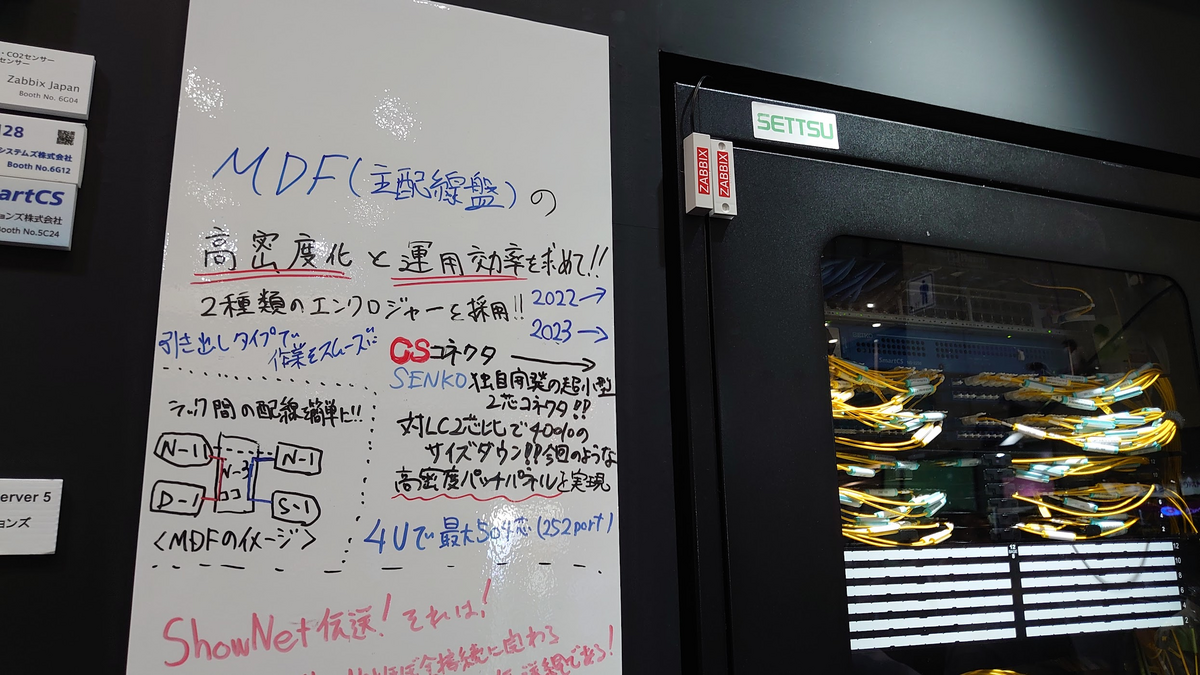 ・CO2センサー
センサー
Zabbix Japan
Booth No. 6G04
128
システムズ株式会社
Booth No.6G12
artCS
ョンズ株式会社
Booth No.5C24
erver 5
ョンズ
MDF(主配線盤)の
高密度化と運用効率を求めて!!
2種類のエンクロジャーを採用!!
2022→
2023→
引き出しタイプで
作業をスムーズに
CSコネクタ →
SENKO独自開発の超小型
2芯コネクタ!!
対LC2芯比で40%の
サイズダウン!!今回のような
高密度パッチパネルを実現
ラック間の配線を簡単に!!
N-11
N-3
N-1
D-1
ココ
S-1
<MDFのイメージ>
4Uで最大504芯(252port)
ShowNet伝送!それは!
ほぼ全接続に関わる
伝送線である!
SETTSU
ZABBIX
ZABBIX